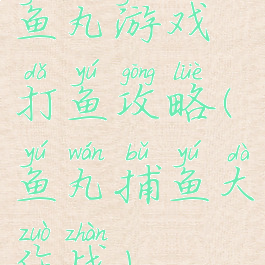 鱼丸游戏
dǎ yú gōng lüè
打鱼攻略(
yú wán bǔ yú dà
鱼丸捕鱼大
zuò zhàn
作战)